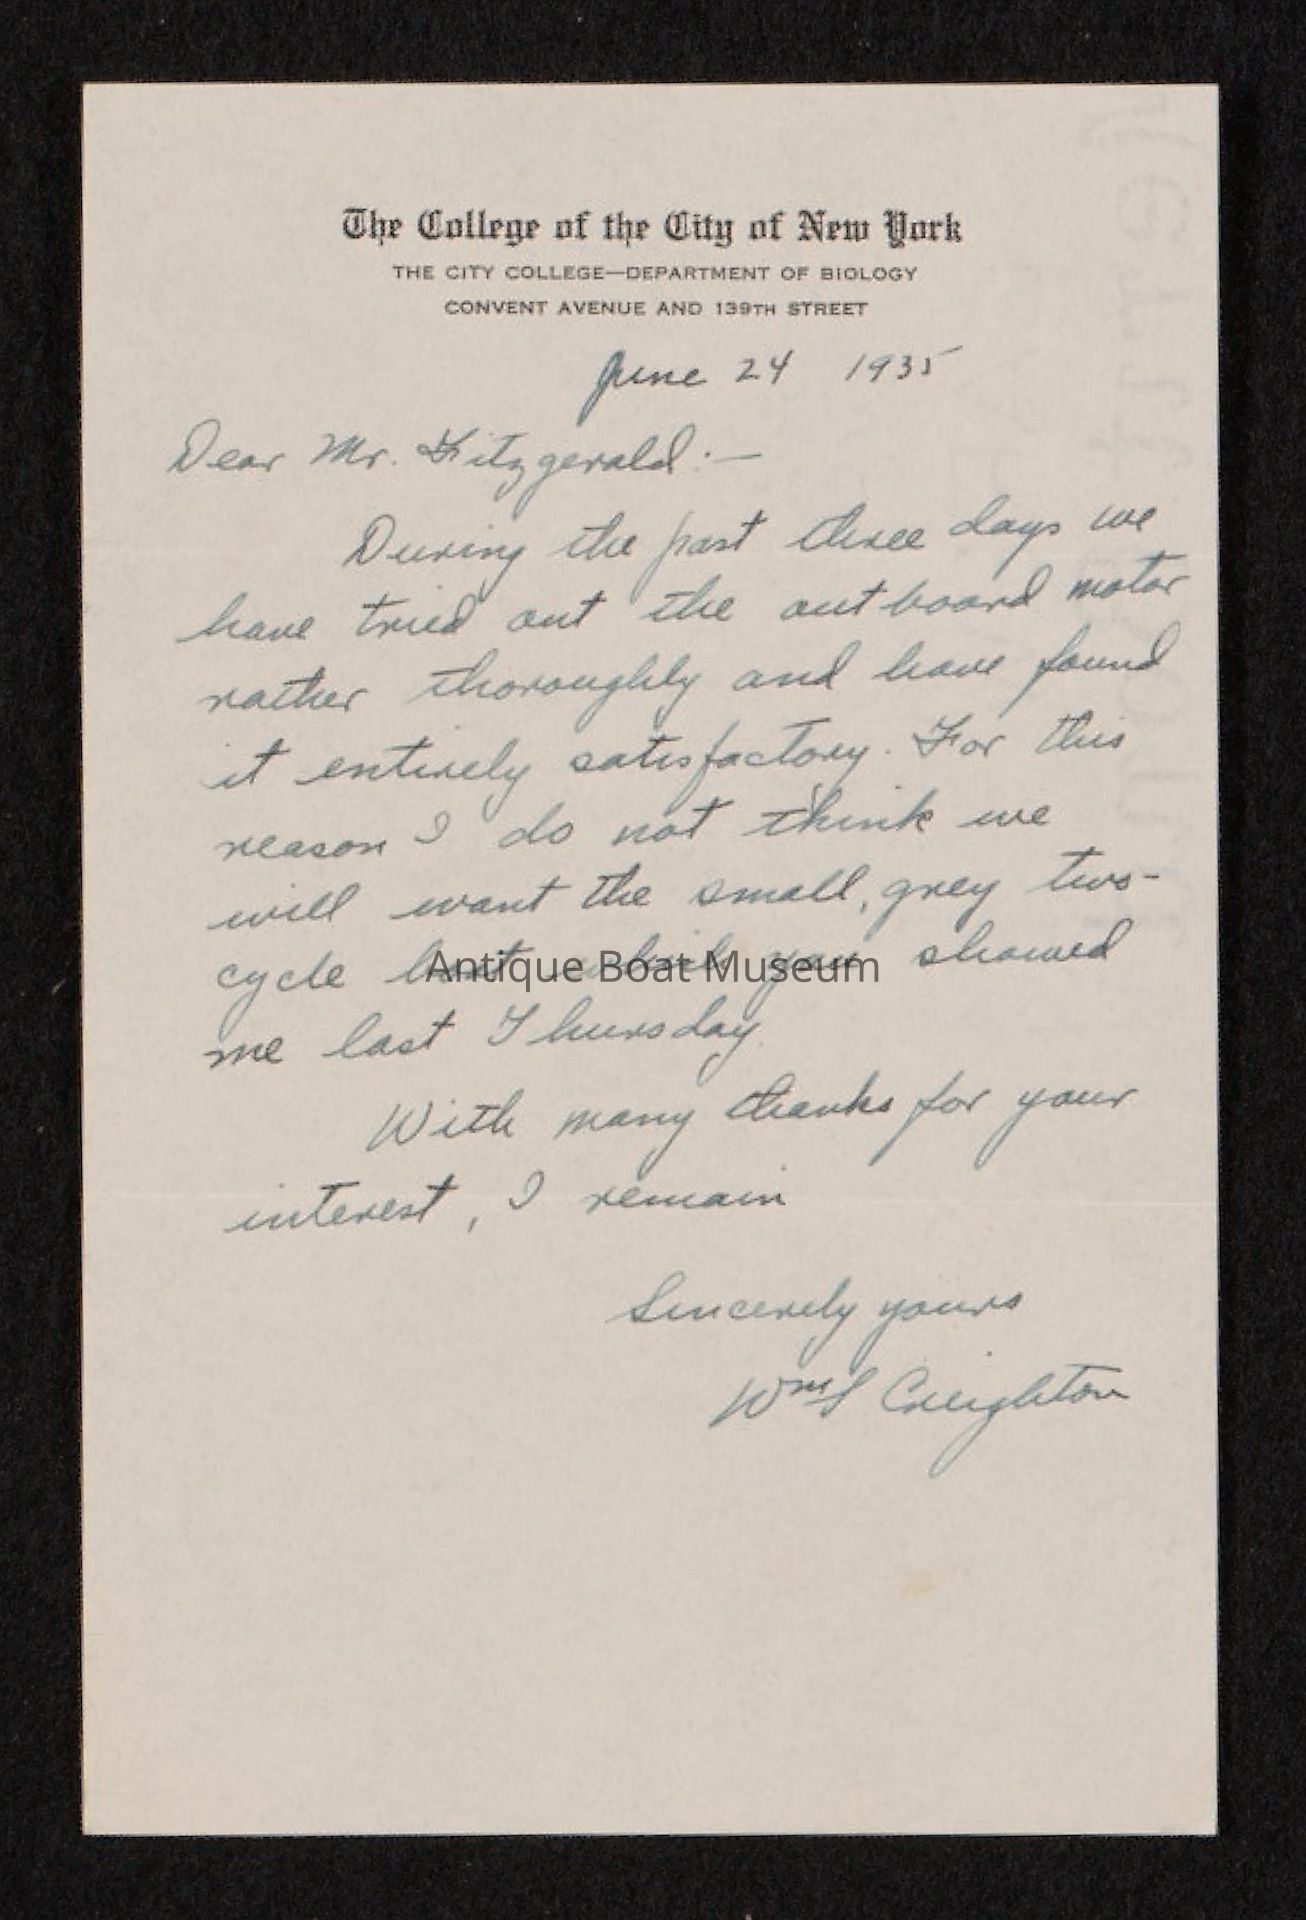 The College of the City of New York
THE CITY COLLEGE—DEPARTMENT OF BIOLOGY
CONVENT AVENUE AND 139TH STREET
June 24 1935
Dear Mr. Fitzgerald:—
During the past three days we
have tried out the outboard motor
rather thoroughly and have found
it entirely satisfactory. For this
reason I do not think we
will want the small, grey two-
cycle boat which you showed
me last Thursday.
With many thanks for your
interest, I remain
Sincerely yours
Wm S Creighton
Antique Boat Museum